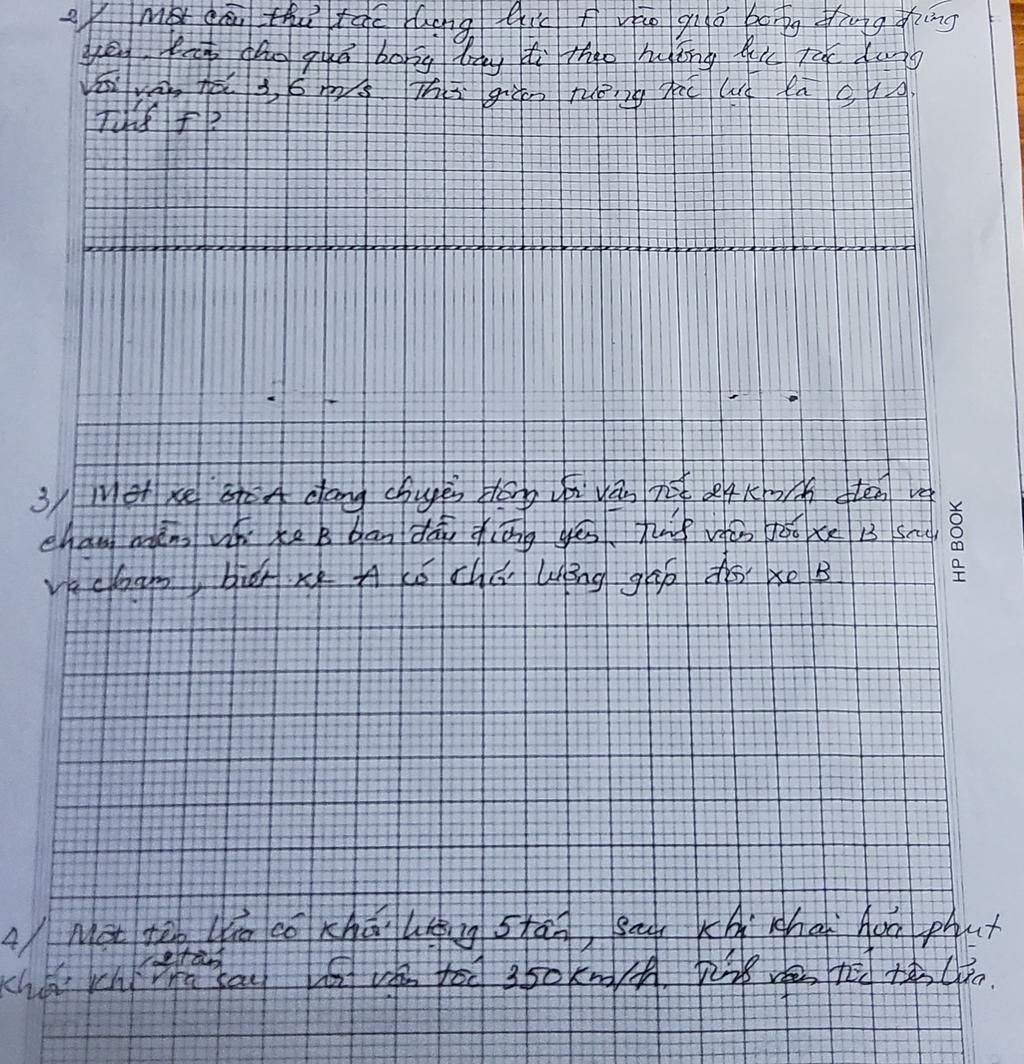 2/ Một cầu thủ tác dụng lực F vào quả bóng đang đứng
yên làm cho quả bóng bay đi theo hướng lực tác dụng
với vận tốc 3,6 m/s. Thời gian tương tác lực là 0,1s.
Tính F?
3/ Một xe ôtô A đang chuyển động với vận tốc 24 km/h đến va
chạm mềm với xe B ban đầu đứng yên. Tính vận tốc xe B sau
va chạm, biết xe A có khối lượng gấp đôi xe B
HP BOOK
4/ Một tên lửa có khối lượng 5 tấn, sau khi khai hoả phụt
2 tấn
khối khí ra sau với vận tốc 350 km/h. Tính vận tốc tên lửa.